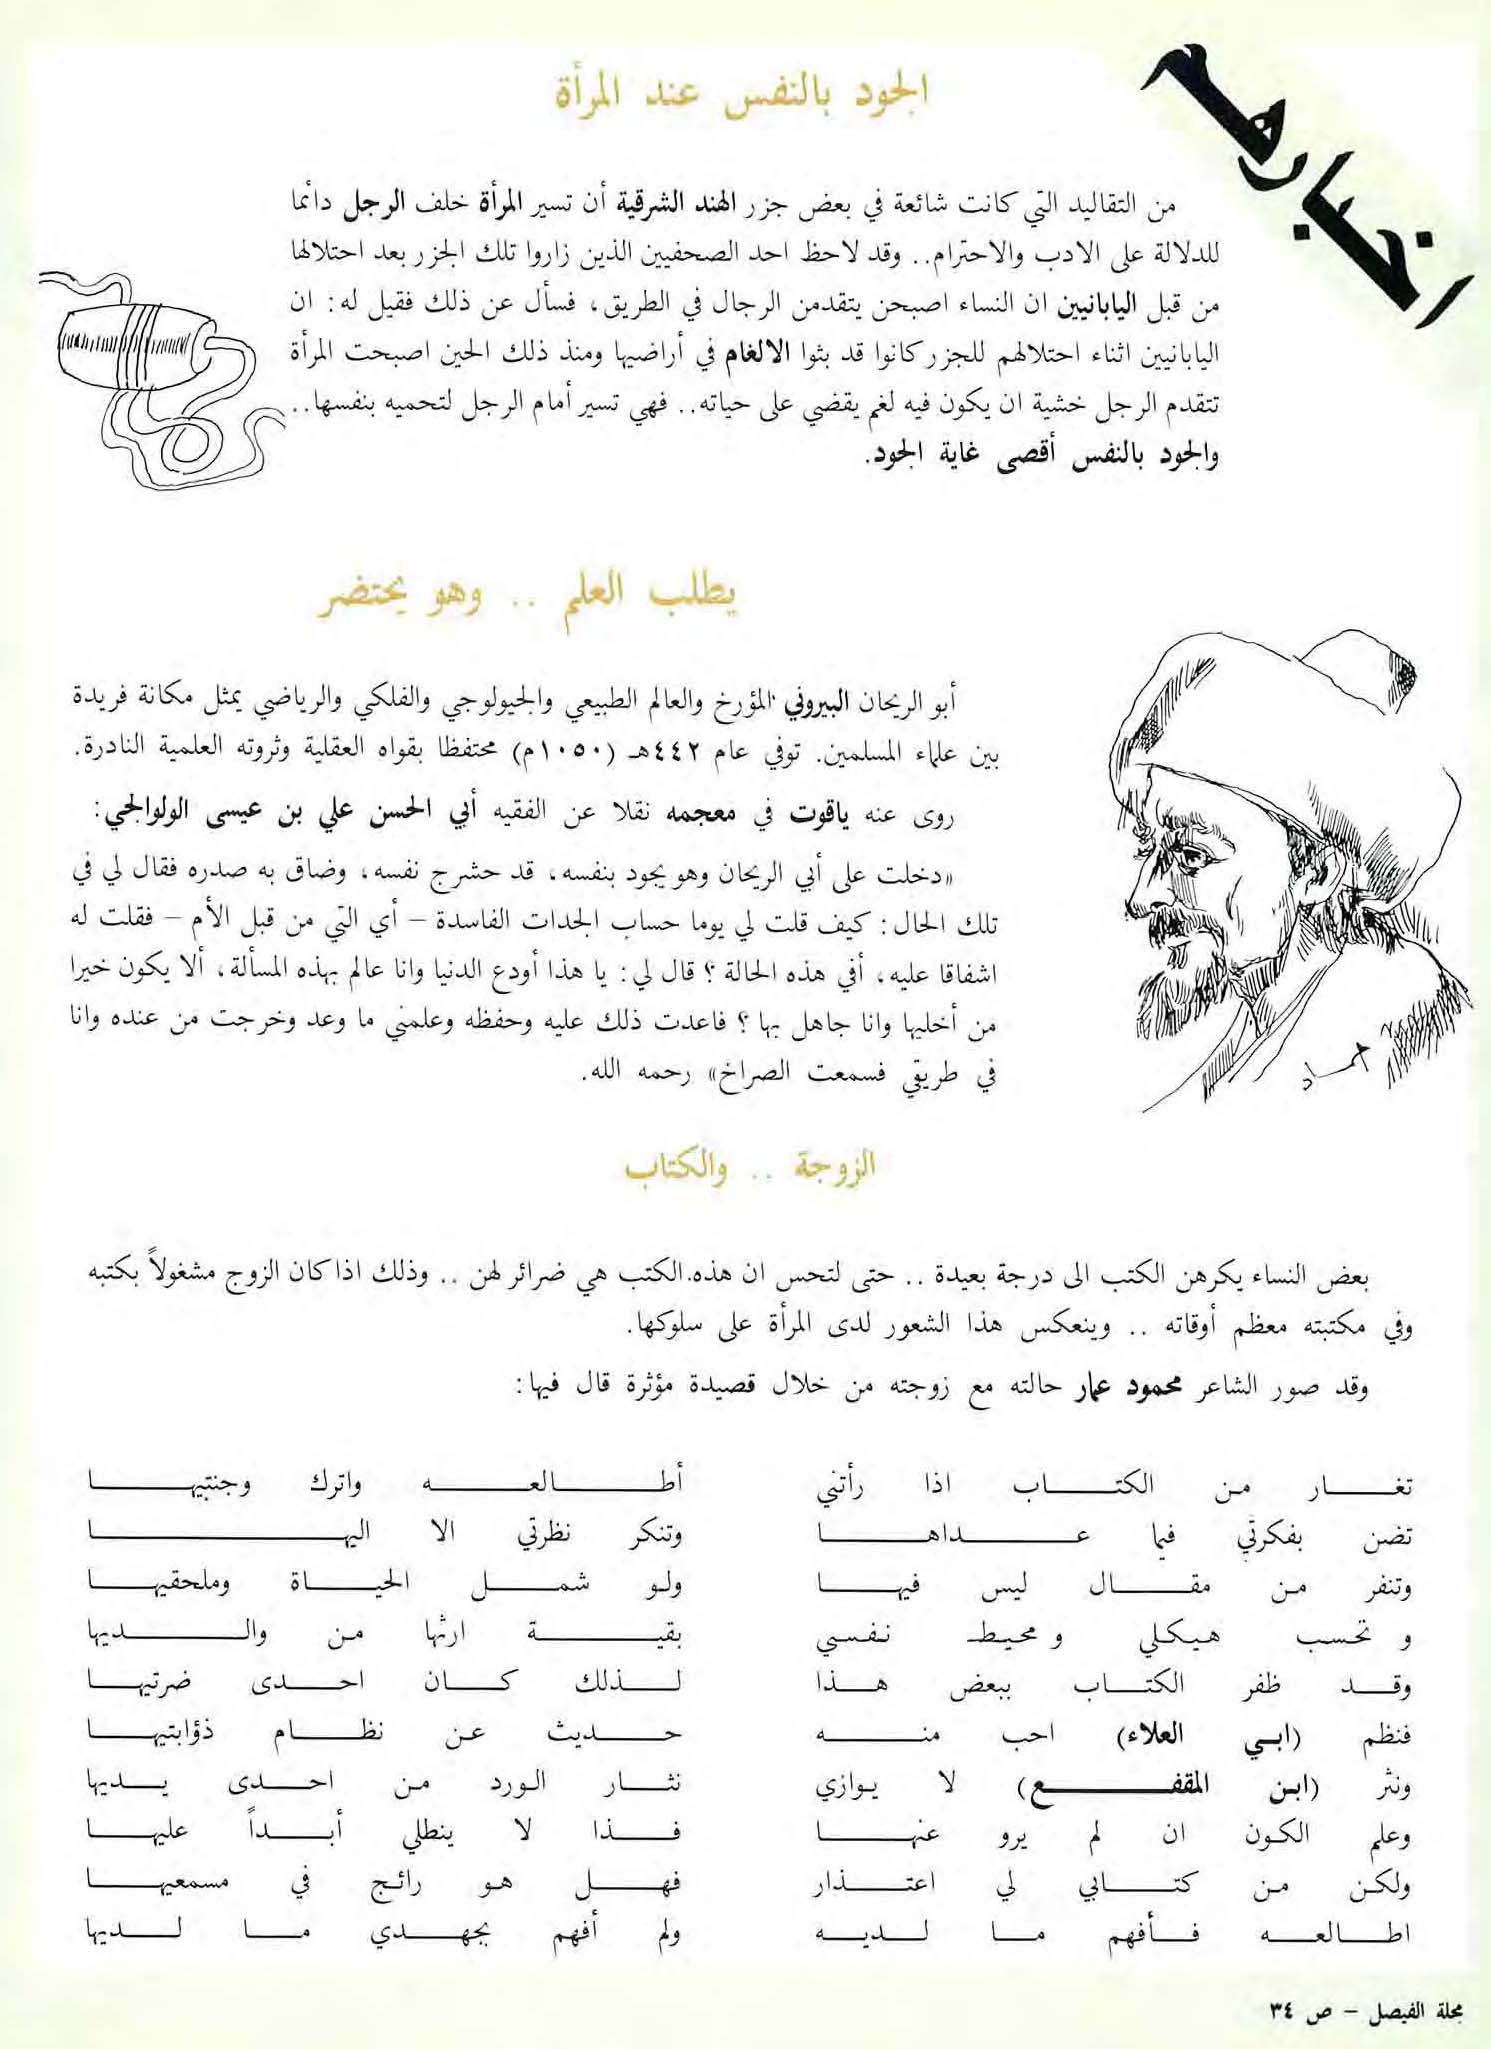 الجود بالنفس عند المرأة
من التقاليد التي كانت شائعة في بعض جزر الهند الشرقية أن تسير المرأة خلف الرجل دائما
للدلالة على الادب والاحترام.. وقد لاحظ احد الصحفيين الذين زاروا تلك الجزر بعد احتلالها
من قبل اليابانيين ان النساء اصبحن يتقدمن الرجال في الطريق، فسأل عن ذلك فقيل له: ان
اليابانيين اثناء احتلالهم للجزر كانوا قد بثوا الالغام في أراضيها ومنذ ذلك الحين اصبحت المرأة
تتقدم الرجل خشية ان يكون فيه لغم يقضي على حياته.. فهي تسير أمام الرجل لتحميه بنفسها..
والجود بالنفس أقصى غاية الجود.
يطلب العلم .. وهو يحتضر
أبو الريحان البيروني المؤرخ والعالم الطبيعي والجيولوجي والفلكي والرياضي يمثل مكانة فريدة
بين علماء المسلمين. توفي عام ٤٤٢هـ (١٠٥٠م) محتفظا بقواه العقلية وثروته العلمية النادرة.
روى عنه ياقوت في معجمه نقلا عن الفقيه أبي الحسن علي بن عيسى الولوالجي:
«دخلت على أبي الريحان وهو يجود بنفسه، قد حشرج نفسه، وضاق به صدره فقال لي في
تلك الحال: كيف قلت لي يوما حساب الجدات الفاسدة – أي التي من قبل الأم – فقلت له
اشفاقا عليه، أفي هذه الحالة ؟ قال لي: يا هذا أودع الدنيا وانا عالم بهذه المسألة، ألا يكون خيرا
من أخليها وانا جاهل بها ؟ فاعدت ذلك عليه وحفظه وعلمني ما وعد وخرجت من عنده وانا
في طريقي فسمعت الصراخ» رحمه الله.
الزوجة .. والكتاب
بعض النساء يكرهن الكتب الى درجة بعيدة .. حتى لتحس ان هذه.الكتب هي ضرائر لهن .. وذلك اذا كان الزوج مشغولاً بكتبه
وفي مكتبته معظم أوقاته .. وينعكس هذا الشعور لدى المرأة على سلوكها.
وقد صور الشاعر محمود عمار حالته مع زوجته من خلال قصيدة مؤثرة قال فيها:
تغار من الكتاب اذا رأتني أطالعه واترك وجنتيها
تضن بفكرتي فيما عداها وتنكر نظرتي الا اليها
وتنفر من مقال ليس فيها ولو شمل الحياة وملحقيها
وتحسب هيكلي ومحيط نفسي بقية ارثها من والديها
وقد ظفر الكتاب ببعض هذا لذلك كان احدى ضرتيها
فنظم (ابي العلاء) احب منه حديث عن نظام ذؤابتيها
ونثر (ابن المقفع) لا يوازي نثار الورد من احدى يديها
وعلم الكون ان لم يرو عنها فذا لا ينطلي أبداً عليها
ولكن من كتابي لي اعتذار فهل هو رائج في مسمعيها
اطالعه فأفهم ما لديه ولم أفهم بجهدي ما لديها
مجلة الفيصل – ص ٣٤